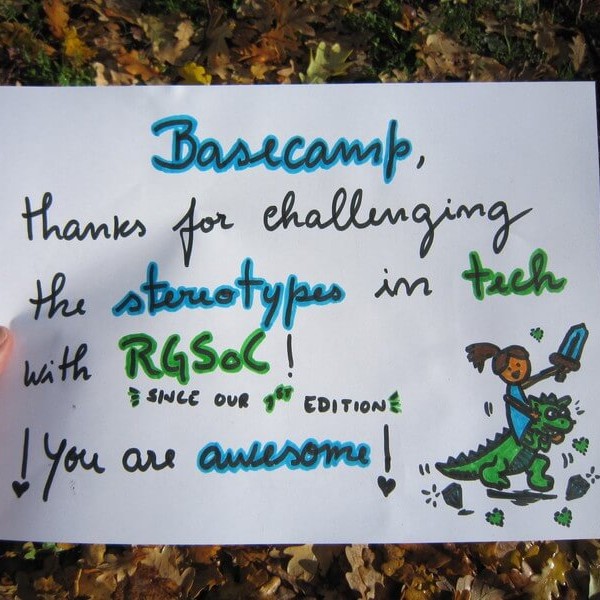 Basecamp,
thanks for challenging
the stereotypes in tech
with RGSoC!
SINCE OUR 1ST EDITION
! You are awesome!